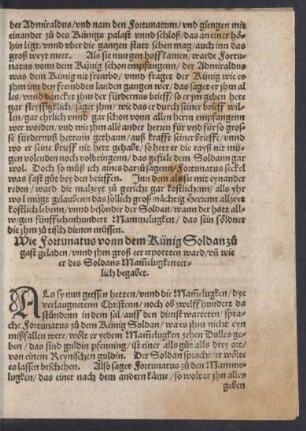 der Admiraldus / vnd nam den Fortunatum / vnd giengen mit
einander zů des Künigs palast vnnd schloß / das an einer hö-
hin ligt / vnnd vber die gantzen statt sehen mag / auch inn das
groß weyt mer. Als sie nun gen hoff kamen / warde Fortu-
natus vonn dem Künig schon empfangen / der Admiraldus
was dem Künig nit frembd / vnnd fraget der Künig wie es
jhm inn den frembden landen gangen wer / das saget er jhm al
les / vnnd dancket jhm der fürdernus brieff / so er jm geben hette
gar fleyssiklich / saget jhm / wie das er durch seiner brieff wil-
len / gar ehrlich vnnd gar schon vonn allen herrn empfangenn
wer worden / vnd wie jhm alle ander heren für vnd für so gros-
se fürdernuß hetten gethann / auß krafft seiner brieffe / vnnd
wo er seine brieff nit hett gehabt / so hett er die rayß nit mü-
gen volenden noch volbringenn / das gefiele dem Soldann gar
wol. Doch so můß ich eines darzů sagenn / Fortunatus seckel
was fast gůt bey den brieffen. Inn dem als sie mit eynander
redten / ward die malzeyt zů gericht gar kostlichenn / als yhr
wol mügt gelauben das sollich groß mächtig Herrenn allzeyt
kostlich lebenn / vnnd besonder der Soldan / wann der hatt all-
wegen fünffzehenhundert Mammelugken / das sein söldner
die jhm zů tisch dienen müssen.
Wie Fortunatus vonn dem Künig Soldan zů
gast geladen / vnnd jhm groß eer erpotten ward / vñ wie
er des Soldans Mam̃elugken eer-
lich begabet.
Als sy nun geessen hetten / vnnd die Mam̃elugken / dye
verlaugnetenn Christenn / noch ob zwölff hundert da
stündenn in dem sal / auff den dienst warteten / spra-
che Fortunatus zů dem Künig Soldan / wa es jhm nicht eyn
mißfallen were / wölt er yedem Mam̃elugken zehen Dulles ge-
ben / das sind guldin pfenning / ist einer alls gůt alls drey ort /
von einem Reynischen guldin. Der Soldan sprache / er wölte
es lassen beschehen. Also saget Fortunatus zů den Mamme-
lugken / das einer nach dem andern käme / so wolt er jhn alles
geben